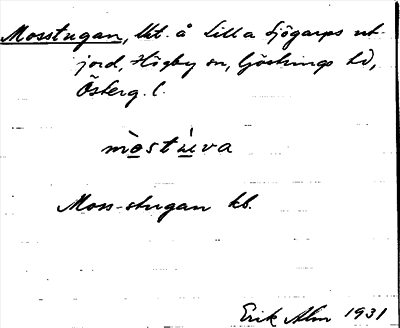 Mosstugan, lht. å Lilla Sjögarps ut-
jord, Högby sn, Göstrings hd,
Österg. l.
mòstù̲va
Moss-stugan kb.
Erik Alm 1931